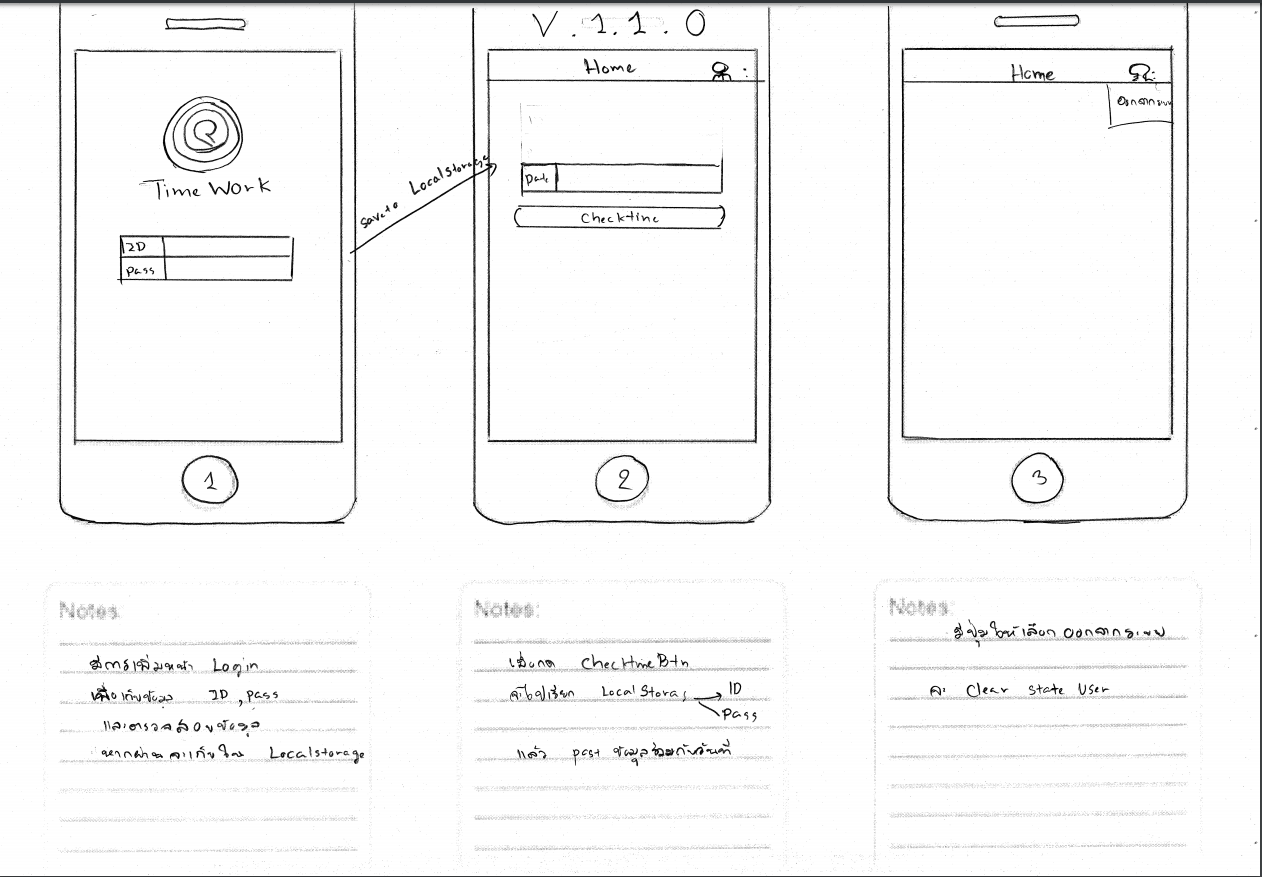 V.1.1.0
Time Work
ID
Pass
Save to Localstorage
Home
Date
Checktime
Home
ออกจากระบบ
1
2
3
Notes:
มีการเพิ่มหน้า Login
เพื่อเก็บข้อมูล ID, pass
และตรวจสอบข้อมูล
หากผ่านจะเก็บใน Localstorage
Notes:
เมื่อกด ChectimeBtn
จะไปเรียก LocalStorag ID
Pass
แล้ว post ข้อมูลร่วมกับวันที่
Notes:
มีปุ่มให้เลือกออกจากระบบ
จะ Clear State User